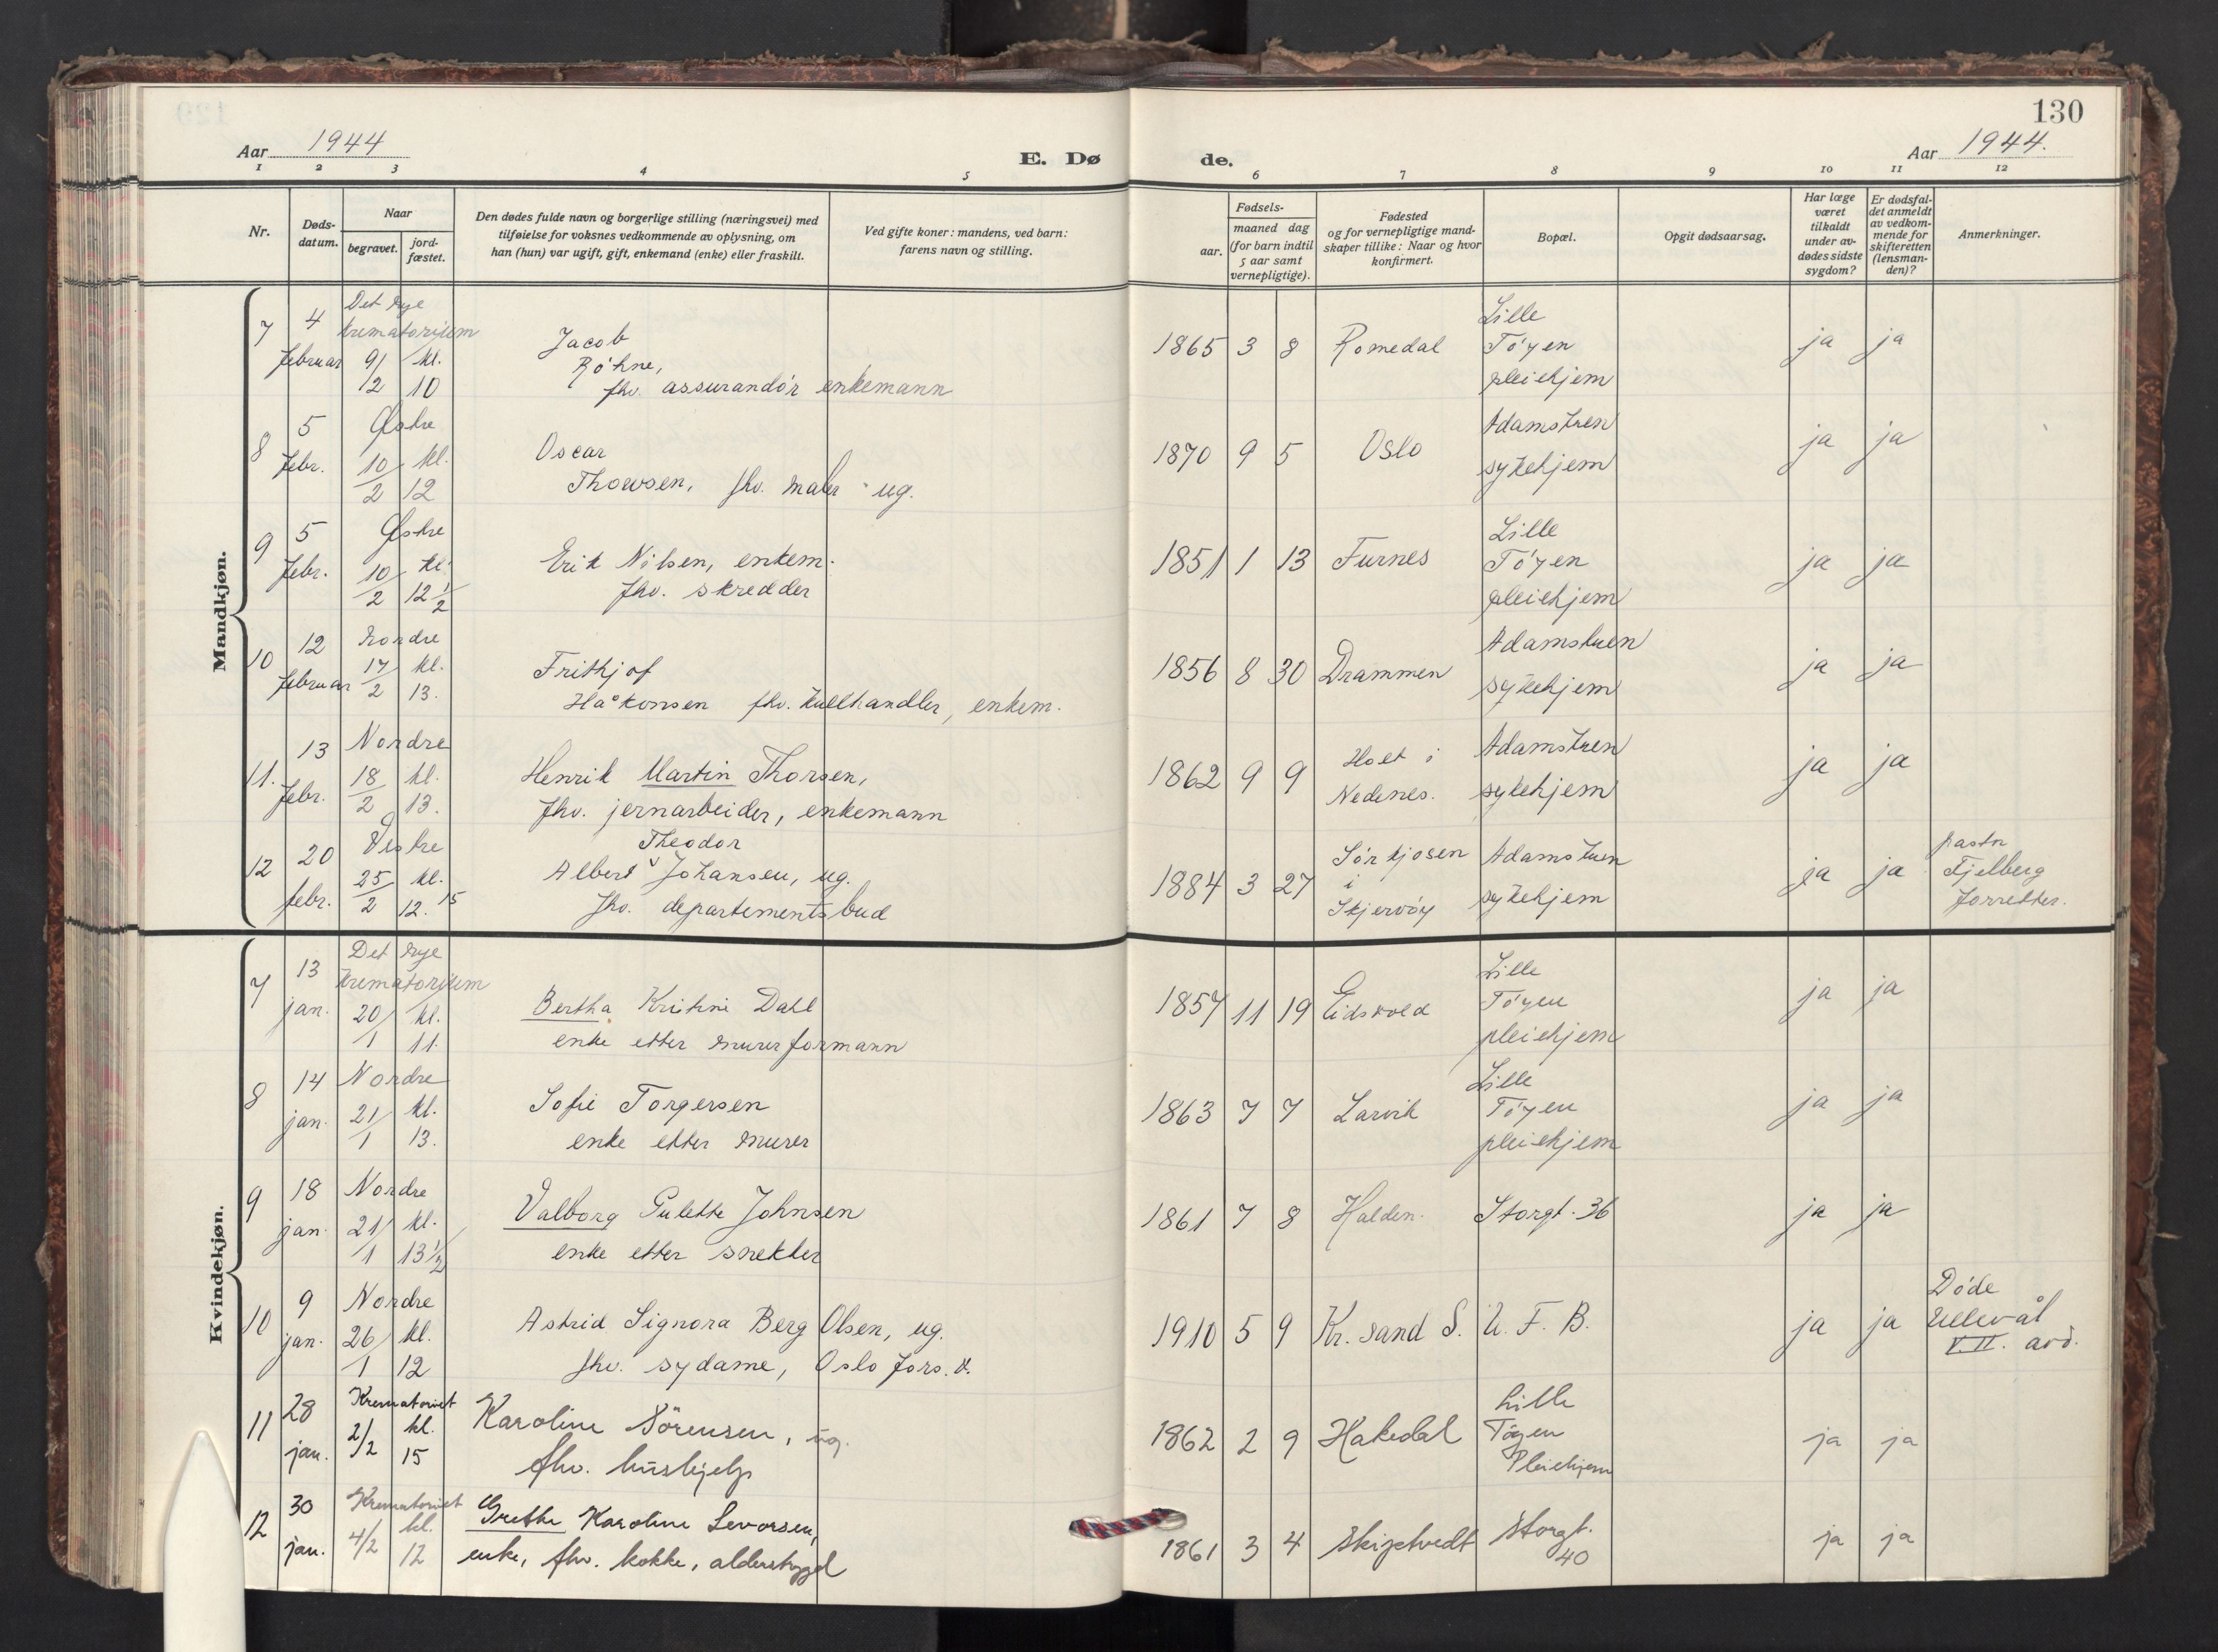 130
Aar 1944
E. Dø de.
Aar 1944.
1 2 3 4 5 6 7 8 9 10 11 12
Nr.
Døds-
datum.
Naar
begravet.
jord-
fæstet.
Den dødes fulde navn og borgerlige stilling (næringsvei) med
tilføielse for voksnes vedkommende av oplysning, om
han (hun) var ugift, gift, enkemand (enke) eller fraskilt.
Ved gifte koner: mandens, ved barn:
farens navn og stilling.
Fødsels-
aar.
maaned dag
(for barn indtil
5 aar samt
vernepligtige).
Fødested
og for vernepligtige mand-
skaper tillike: Naar og hvor
konfirmert.
Bopæl.
Opgit dødsaarsag.
Har læge
været
tilkaldt
under av-
dødes sidste
sygdom?
Er dødsfal-
det anmeldt
av vedkom-
mende for
skifteretten
(lensman-
den)?
Anmerkninger.
Mandkjøn.
7
4
februar
Det nye
krematorium
9/2 kl. 10
Jacob
Røhne,
fhv. assurandør enkemann
1865 3 8 Romedal
Lille
Tøyen
pleiehjem
ja ja
8
5
febr.
Østre
10/2 kl. 12
Oscar
Thowsen, fhv. maler ug.
1870 9 5 Oslo
Adamstuen
sykehjem
ja ja
9
5
febr.
Østre
10/2 kl. 12 1/2
Erik Nilsen, enkem.
fhv. skredder
1851 1 13 Furnes
Lille
Tøyen
pleiehjem
ja ja
10
12
februar
Nordre
17/2 kl. 13.
Frithjof
Håkonsen fhv. kullhandler, enkem.
1856 8 30 Drammen
Adamstuen
sykehjem
ja ja
11.
13
febr.
Nordre
18/2 kl. 13.
Henrik Martin Thorsen,
fhv. jernarbeider, enkemann
1862 9 9
Holt i
Nedenes.
Adamstuen
sykehjem
ja ja
12
20
febr.
Vestre
25/2 kl. 12.15
Theodor
Albert Johansen, ug.
fhv. departementsbud
1884 3 27
Sørkjosen
i
Skjervøy
Adamstuen
sykehjem
ja ja
pastor
Fjelberg
forretter.
Kvindekjøn.
7
13
jan.
Det nye
krematorium
20/1 kl. 11.
Bertha Kristine Dahl
enke etter murerformann
1857 11 19 Eidsvold
Lille
Tøyen
pleiehjem
ja ja
8
14
jan.
Nordre
21/1 kl. 13.
Sofie Torgersen
enke etter murer
1863 7 7 Larvik
Lille
Tøyen
pleiehjem
ja ja
9
18
jan.
Nordre
21/1 kl. 13 1/2
Valborg Julette Johnsen
enke etter snekker
1861 7 8 Halden. Storgt. 36 ja ja
10
9
jan.
Nordre
26/1 kl. 12
Astrid Signora Berg Olsen, ug.
fhv. sydame, Oslo fors. v.
1910 5 9 Kr. sand S. U. F. B. ja ja
Døde
Ullevål
V. II. avd.
11
28
jan.
Krematoriet
2/2 kl. 15
Karoline Sörensen, ug.
fhv. hushjelp
1862 2 9 Hakedal
Lille
Töyen
Pleiehjem
ja ja
12
30
jan.
Krematoriet
4/2 kl. 12
Grethe Karoline Levorsen,
enke, fhv. kokke, alderstrygd
1861 3 4 Skiptvedt
Storgt.
40
ja ja